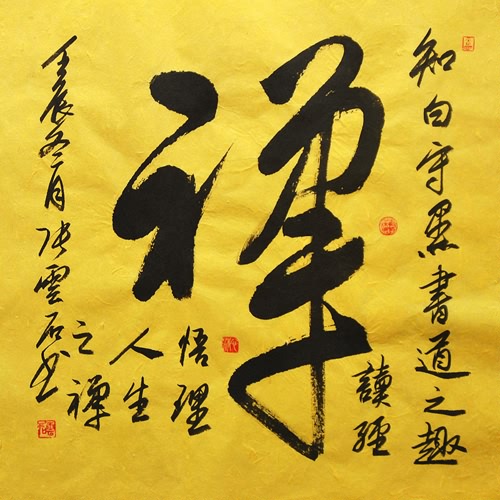 知白守黑書道之趣
讀經
禪
悟理
人生
之禪
壬辰冬月张雲石书